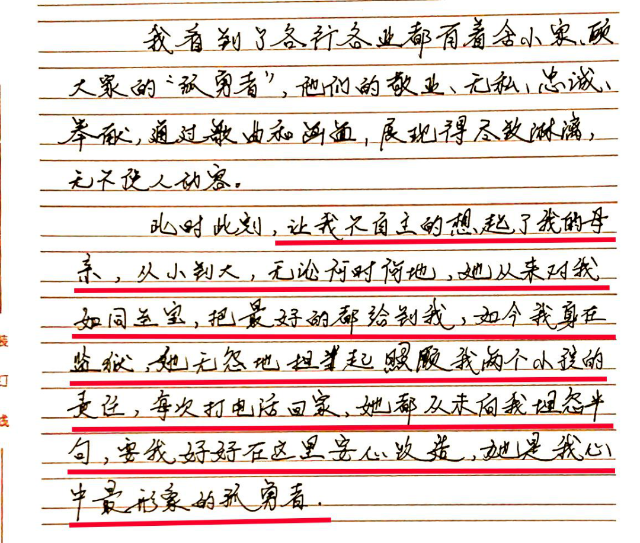 我看到了各行各业都有着舍小家、顾
大家的“孤勇者”，他们的敬业、无私、忠诚、
奉献，通过歌曲和画面，展现得尽致淋漓，
无不使人动容。
此时此刻，让我不自主的想起了我的母
亲，从小到大，无论何时何地，她从来对我
如同至宝，把最好的都给到我，如今我身在
监狱，她无怨地担当起照顾我两个小孩的
责任，每次打电话回家，她都从未向我埋怨半
句，要我好好在这里安心改造，她是我心
中最形象的孤勇者.
装
订
线